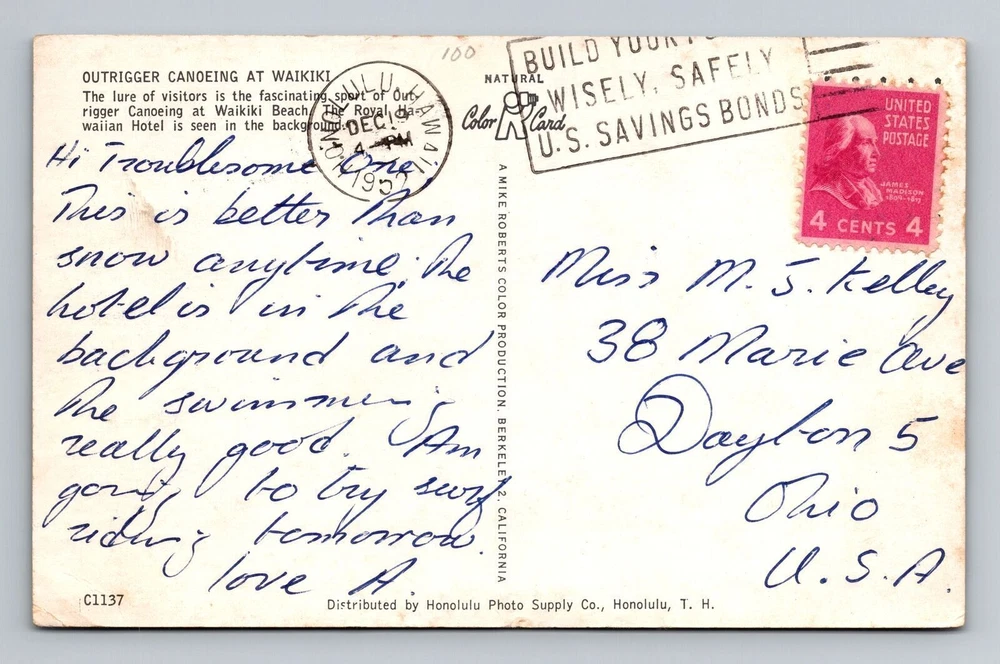 100
OUTRIGGER CANOEING AT WAIKIKI
The lure of visitors is the fascinating sport of Out-
rigger Canoeing at Waikiki Beach. The Royal Ha-
waiian Hotel is seen in the background.
HONOLULU, HAWAII
DEC 19
4 - PM
195
NATURAL
Color Card
BUILD YOUR
WISELY, SAFELY
U.S. SAVINGS BONDS
UNITED
STATES
POSTAGE
JAMES
MADISON
1809-1817
4 CENTS 4
Hi Troublesome One
This is better than
snow anytime; the
hotel is in the
background and
the swimming
really good. Am
going to try surf
riding tomorrow.
love A.
A MIKE ROBERTS COLOR PRODUCTION, BERKELEY 2, CALIFORNIA
Miss M. J. Kelley
38 Marie Ave
Dayton 5
Ohio
U.S.A.
C1137
Distributed by Honolulu Photo Supply Co., Honolulu, T. H.